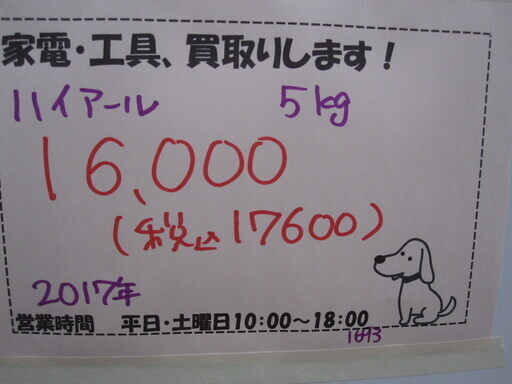 家電・工具、買取りします！
ハイアール 5kg
16,000
(税込17600)
2017年
営業時間 平日・土曜日10:00～18:00
1693